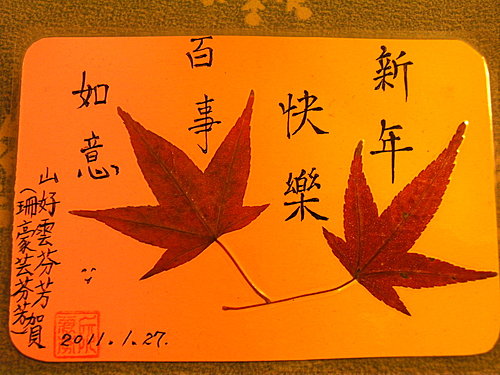 新年
快樂
百事
如意
山好雲芬芳賀
(珊豪芸芬芳)
2011.1.27.